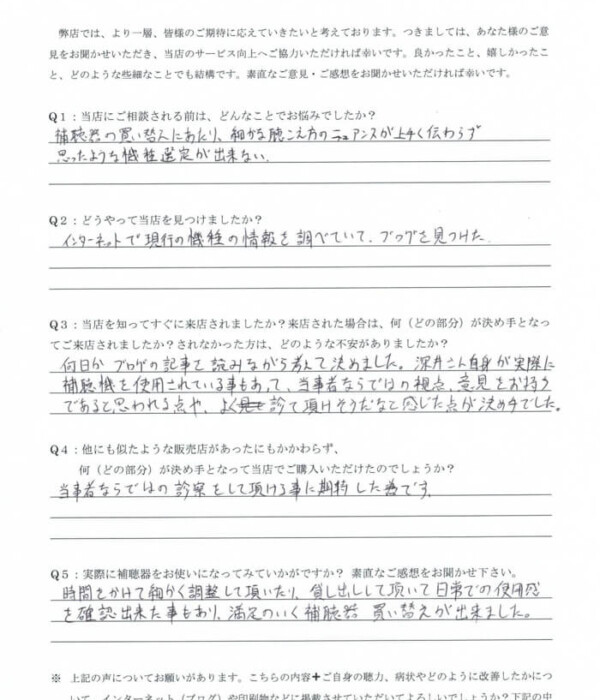 弊店では、より一層、皆様のご期待に応えていきたいと考えております。つきましては、あなた様のご意
見をお聞かせいただき、当店のサービス向上へご協力いただければ幸いです。良かったこと、嬉しかったこ
と、どのような些細なことでも結構です。素直なご意見・ご感想をお聞かせいただければ幸いです。
Q1：当店にご相談される前は、どんなことでお悩みでしたか？
補聴器の買い替えにあたり、細かな聴こえ方のニュアンスが上手く伝わらず
思ったような機種選定が出来ない。
Q2：どうやって当店を見つけましたか？
インターネットで現行の機種の情報を調べていて、ブログを見つけた。
Q3：当店を知ってすぐに来店されましたか？来店された場合は、何（どの部分）が決め手となっ
てご来店されましたか？されなかった方は、どのような不安がありましたか？
何日か ブログの記事を読みながら考えて決めました。深井さん自身が実際に
補聴機を使用されている事もあって、当事者ならではの視点、意見をお持ち
であると思われる点や、よく診て頂けそうだなと感じた点が決め手でした。
Q4：他にも似たような販売店があったにもかかわらず、
何（どの部分）が決め手となって当店でご購入いただけたのでしょうか？
当事者ならではの診察をして頂ける事に期待した為です。
Q5：実際に補聴器をお使いになってみていかがですか？ 素直なご感想をお聞かせ下さい。
時間をかけて細かく調整して頂いたり、貸し出しして頂いて日常での使用感
を確認出来た事もあり、満足のいく補聴器 買い替えが出来ました。
※ 上記の声についてお願いがあります。こちらの内容＋ご自身の聴力、病状やどのように改善したかにつ
いて、インターネット（ブログ）や印刷物などに掲載させていただいてよろしいでしょうか？下記の中